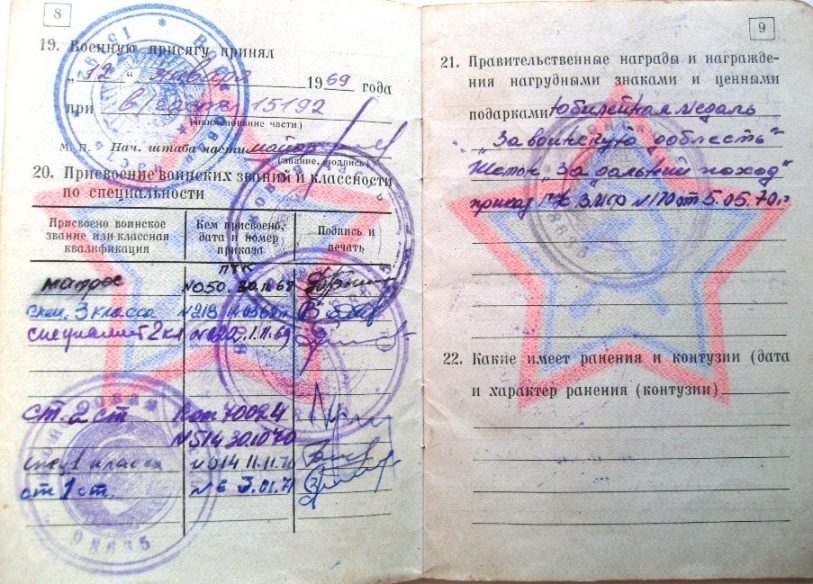 8
19. Военную присягу принял
„12“ января 1969 года
при в/части 15192
(наименование части)
М. П. Нач. штаба части майор
(звание, подпись)
20. Присвоение воинских званий и классности
по специальности
Присвоено воинское звание или классная квалификация
Кем присвоено, дата и номер приказа
Подпись и печать
матрос №050. 30.11.68
спец. 3 класса №213
специалист 2 кл 1.11.69
ст. 2 ст
№514 30.10.70
спец 1 класса 11.11.70
ст 1 ст. №6 3.01.71
15192
98635
9
21. Правительственные награды и награжде-
ния нагрудными знаками и ценными
подарками Юбилейная медаль
„За воинскую доблесть“
Жетон „За дальний поход“
приказ №170 от 5.05.70 г.
98635
22. Какие имеет ранения и контузии (дата
и характер ранения (контузии)